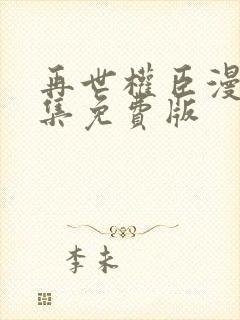 再世權臣漫
集免費版
李未